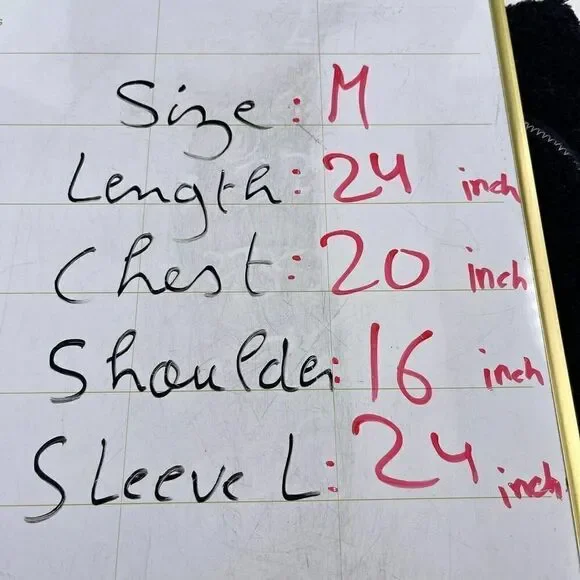 Size: M
Length: 24 inch
Chest: 20 inch
Shoulder: 16 inch
Sleeve L: 24 inch